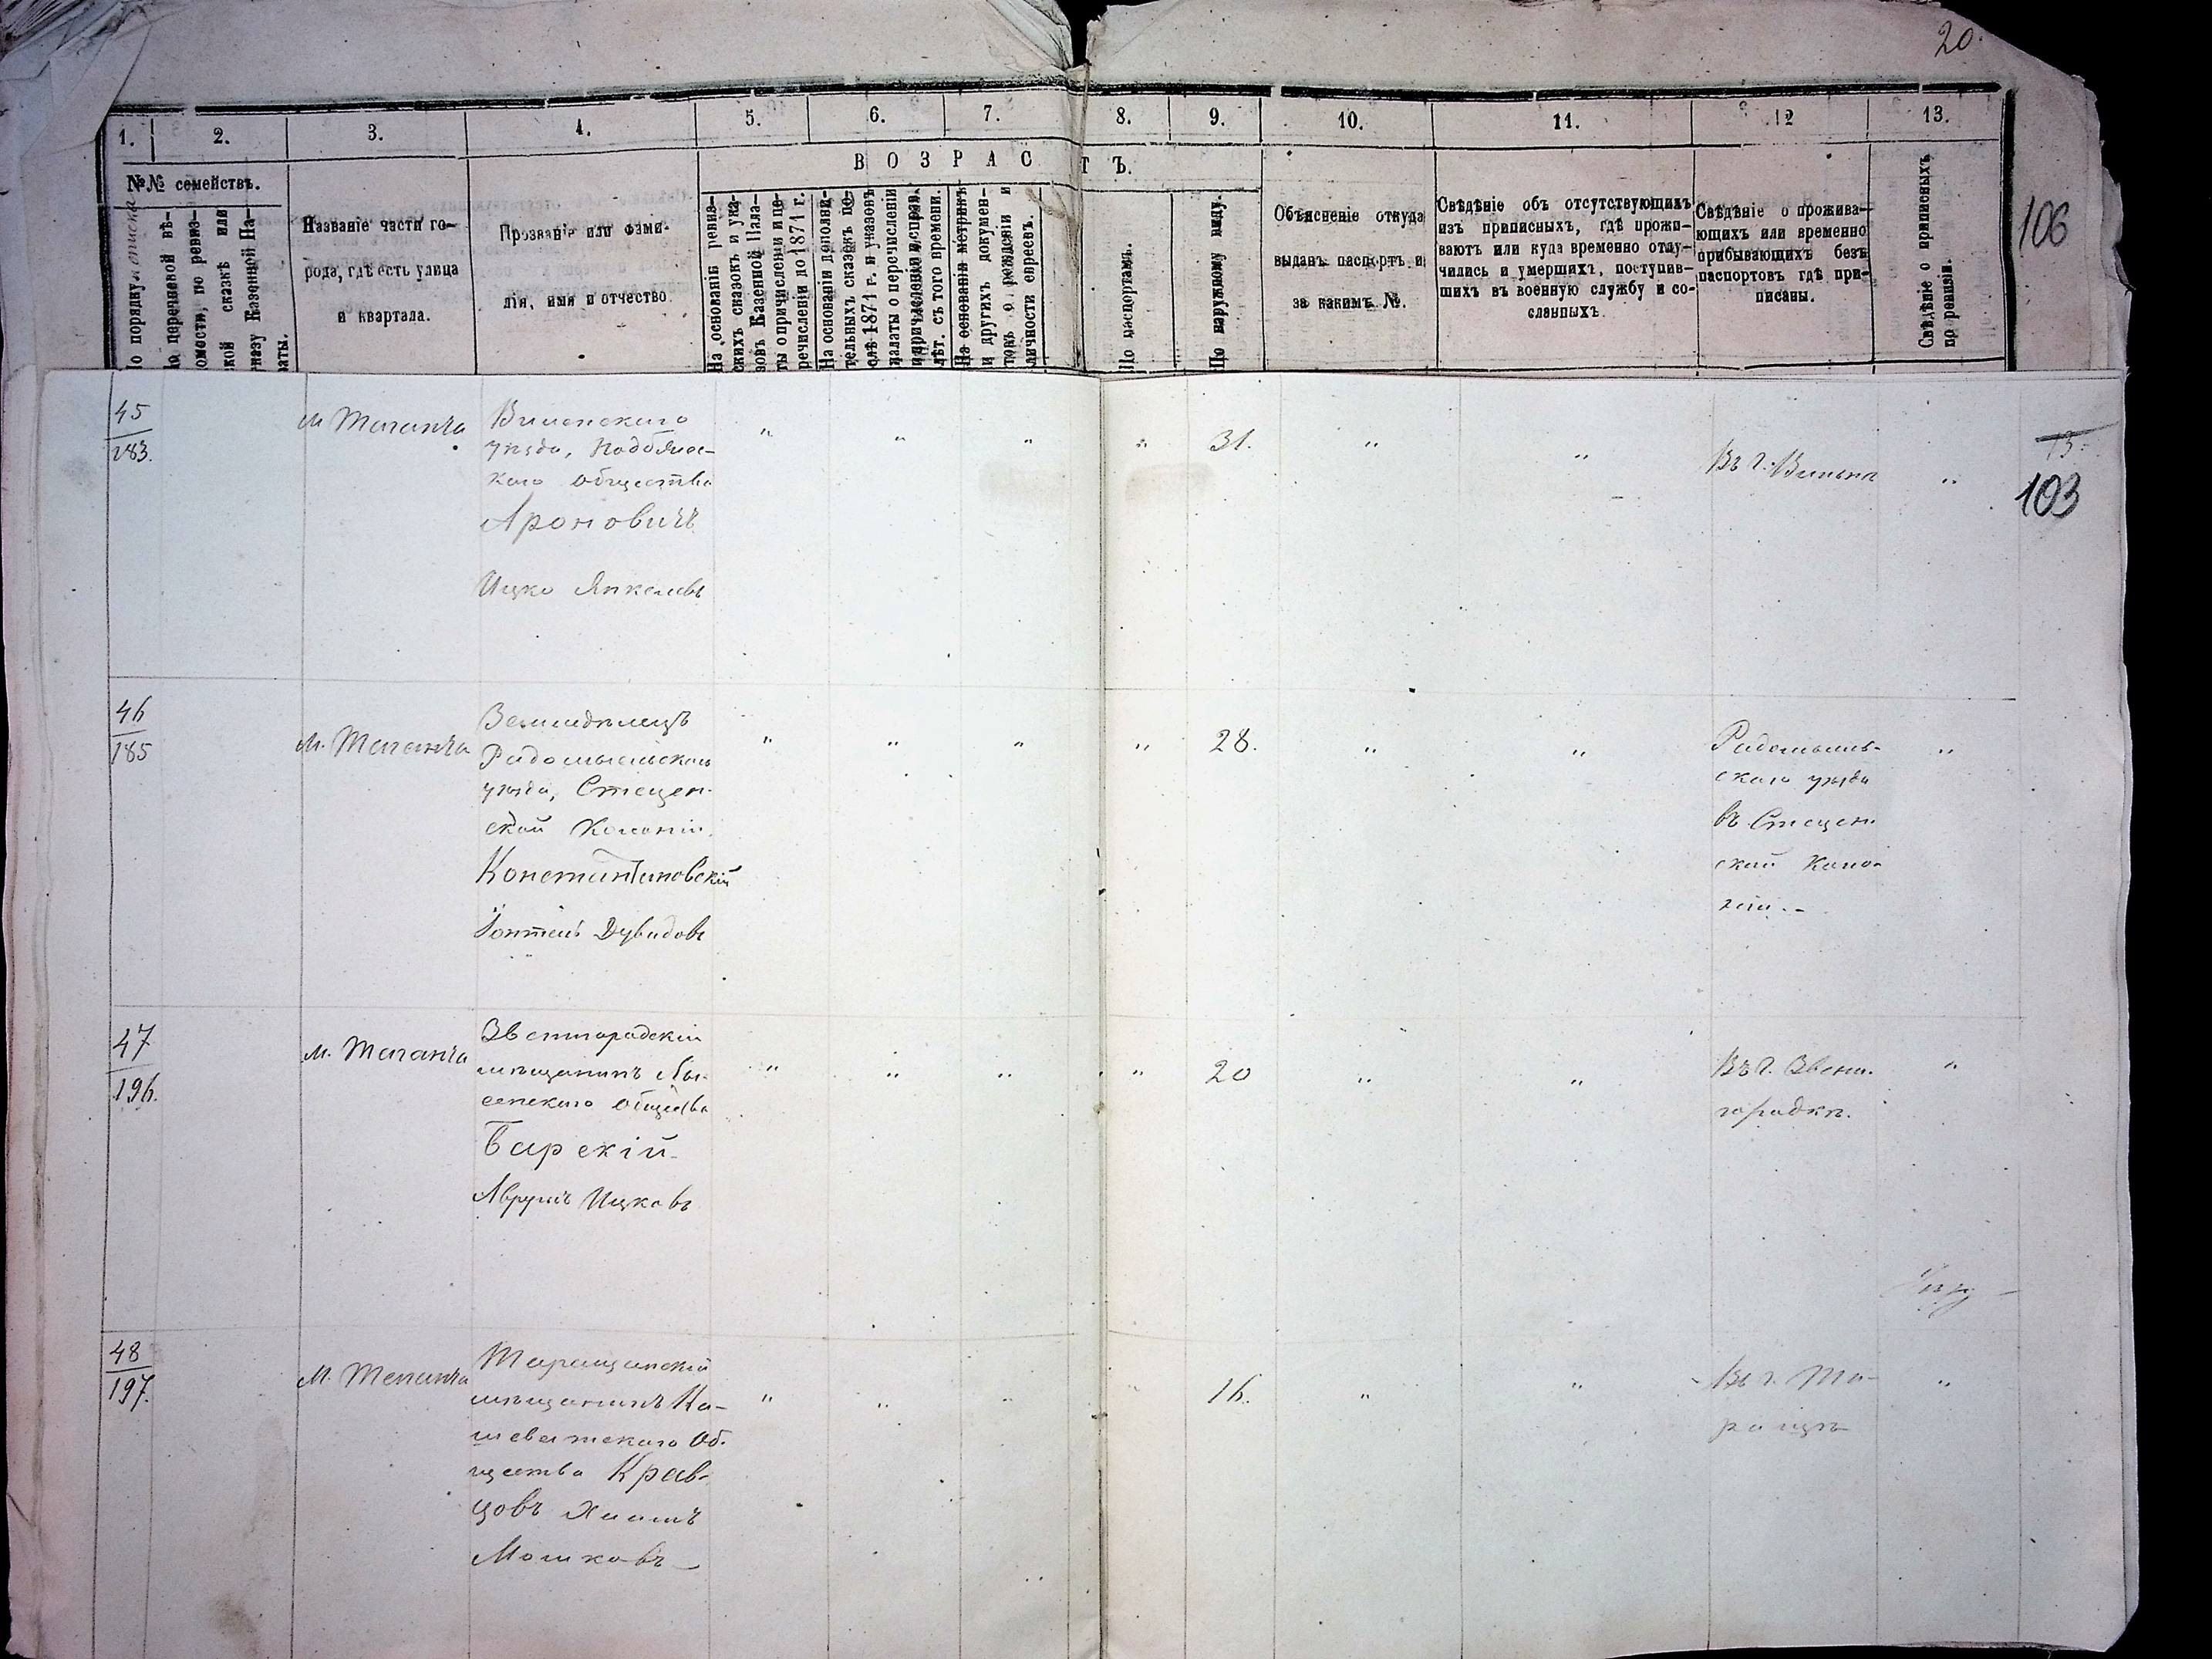 20.
106
1. 2. 3. 4. 5. 6. 7. 8. 9. 10. 11. 12 13.
№№ семействъ.
ВОЗРАСТЪ.
По порядку списка
По перечневой вѣ-
домости, по ревиз-
ской сказкѣ или
указу Казенной Па-
латы.
Названіе части го-
рода, гдѣ есть улица
и квартала.
Прозваніе или фами-
лія, имя и отчество.
На основаніи ревиз-
скихъ сказокъ и ука-
зовъ Казенной Пала-
ты о причисленіи и пе-
речисленіи до 1871 г.
На основаніи дополни-
тельныхъ сказокъ по-
слѣ 1871 г. и указовъ
палаты о перечисленіи
и причисленіи и справ.
лѣт. съ того времени.
На основаніи метрикъ
и другихъ докумен-
товъ о рожденіи и
личности евреевъ.
По паспортамъ.
По наружному виду.
Объясненіе откуда
выданъ паспортъ и
за какимъ №.
Свѣдѣніе объ отсутствующихъ
изъ приписныхъ, гдѣ прожи-
ваютъ или куда временно отлу-
чились и умершихъ, поступив-
шихъ въ военную службу и со-
сланныхъ.
Свѣдѣніе о прожива-
ющихъ или временно
прибывающихъ безъ
паспортовъ гдѣ при-
писаны.
Свѣдѣніе о приписныхъ
по ревизіи.
45
183.
м Таганча
Виленскаго
уѣзда,
каго общества
Ароновичъ
Ицко Янкелевъ
" " " " 31. " "
Въ г. Вильнѣ
"
73.
103
46
185
м. Таганча
Земледѣлецъ
Радомысльскаго
уѣзда, Стецен-
ской Колоніи.
Константиновскій
Дувидовъ
" " " " 28. " "
Радомысль-
скаго уѣзда
въ Стецен-
ской Коло-
ніи.-
"
47
196.
м. Таганча
Звенигородскій
мѣщанинъ Лы-
сенскаго общества
Барскій
Аврумъ Ицковъ
" " " " 20 " "
Въ г. Звени-
городкѣ.
"
48
197.
м. Таганча
Таращанскій
мѣщанинъ Ка-
шеватскаго Об-
щества Крав-
цовъ Хаимъ
Мошковъ
" " " 16. " "
Въ г. Та-
ращѣ
"